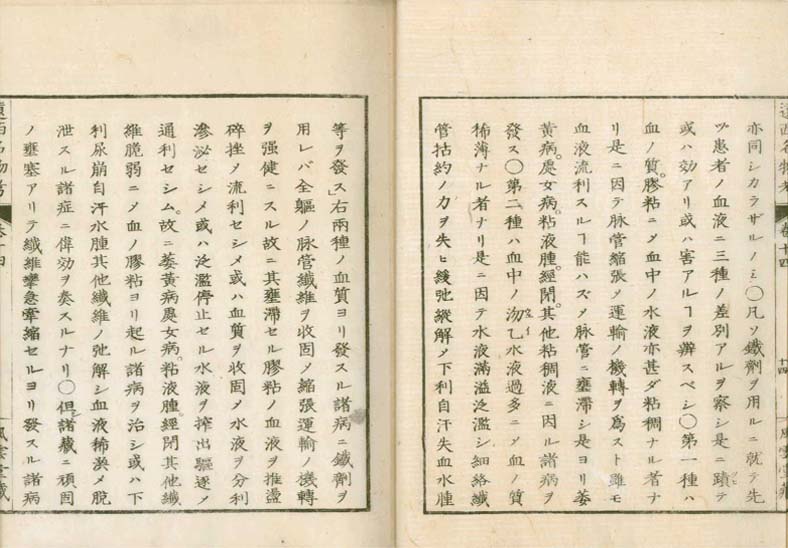 遠西名物考 卷十四 十四 風雲堂藏
亦同シカラザルノミ○凡ソ鐵劑ヲ用ルニ就テ先
ツ患者ノ血液ニ三種ノ差別アルヲ察シ是ニ テ
或ハ効アリ或ハ害アルヿヲ辨スベシ○第一種ハ
血ノ質。膠粘ニメ血中ノ水液亦甚ダ粘稠ナル者ナ
リ是ニ因テ脉管縮張メ運輸ノ機轉ヲ爲スト雖モ
血液流利スルヿ能ハズメ脉管ニ壅滯シ是ヨリ萎
黄病。處女病。粘液腫。經閉。其他粘稠液ニ因ル諸病ヲ
發ス○第二種ハ血中ノ沕乙水液過多ニメ血ノ質
稀薄ナル者ナリ是ニ因テ水液滿溢泛濫シ細絡纖
管括約ノ力ヲ失ヒ緩弛縱解メ下利自汗失血水腫
等ヲ發ス右兩種ノ血質ヨリ發スル諸病ニ鐵劑ヲ
用レバ全軀ノ脉管纖維ヲ收固メ縮張運輸ノ機轉
ヲ强健ニスル故ニ其壅滯セル膠粘ノ血液ヲ推盪
碎挫メ流利セシメ或ハ血質ヲ收固メ水液ヲ分利
滲泌セシメ或ハ泛濫停止セル水液ヲ搾出驅逐メ
通利セシム。故ニ萎黄病處女病。粘液腫。經閉其他纖
維脆弱ニメ血ノ膠粘ヨリ起ル諸病ヲ治シ或ハ下
利尿崩自汗水腫其他纖維ノ弛解シ血液稀渙メ脱
泄スル諸症ニ偉効ヲ奏スルナリ○但諸藏ニ頑固
ノ壅塞アリテ纖維攣急牽縮セルヨリ發スル諸病
遠西名物考 卷十四 風雲堂藏